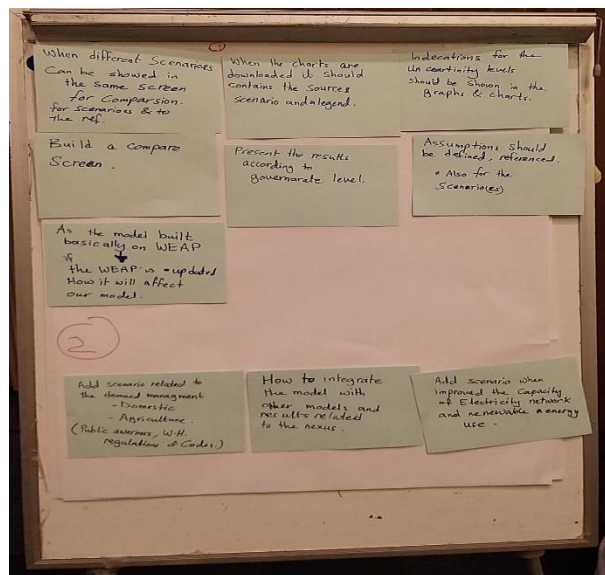 ①
When different Scenarioes
Can be showed in
the same screen
for Comparsion.
for scenarioes & to
the ref.
When the charts are
downloaded it should
contains the sources
scenario and alegend.
Indecations for the
un ceartinity levels
should be shown in the
graphs & charts.
Build a Compare
Screen.
Present the results
according to
governarate level.
Assumptions should
be defined, referenced.
* Also for the
Scenario(es)
As the model built
basically on WEAP
if
the WEAP is updated
How it will affect
our model.
2
Add scenario related to
the demand managment
- Domestic
- Agriculture.
(Public awarness, W.H.
regulations & Codes.)
How to integrate
the model with
other models and
results related
to the nexus.
Add scenario when
improved the Capacity
of Electricity network
and renewable energy
use.